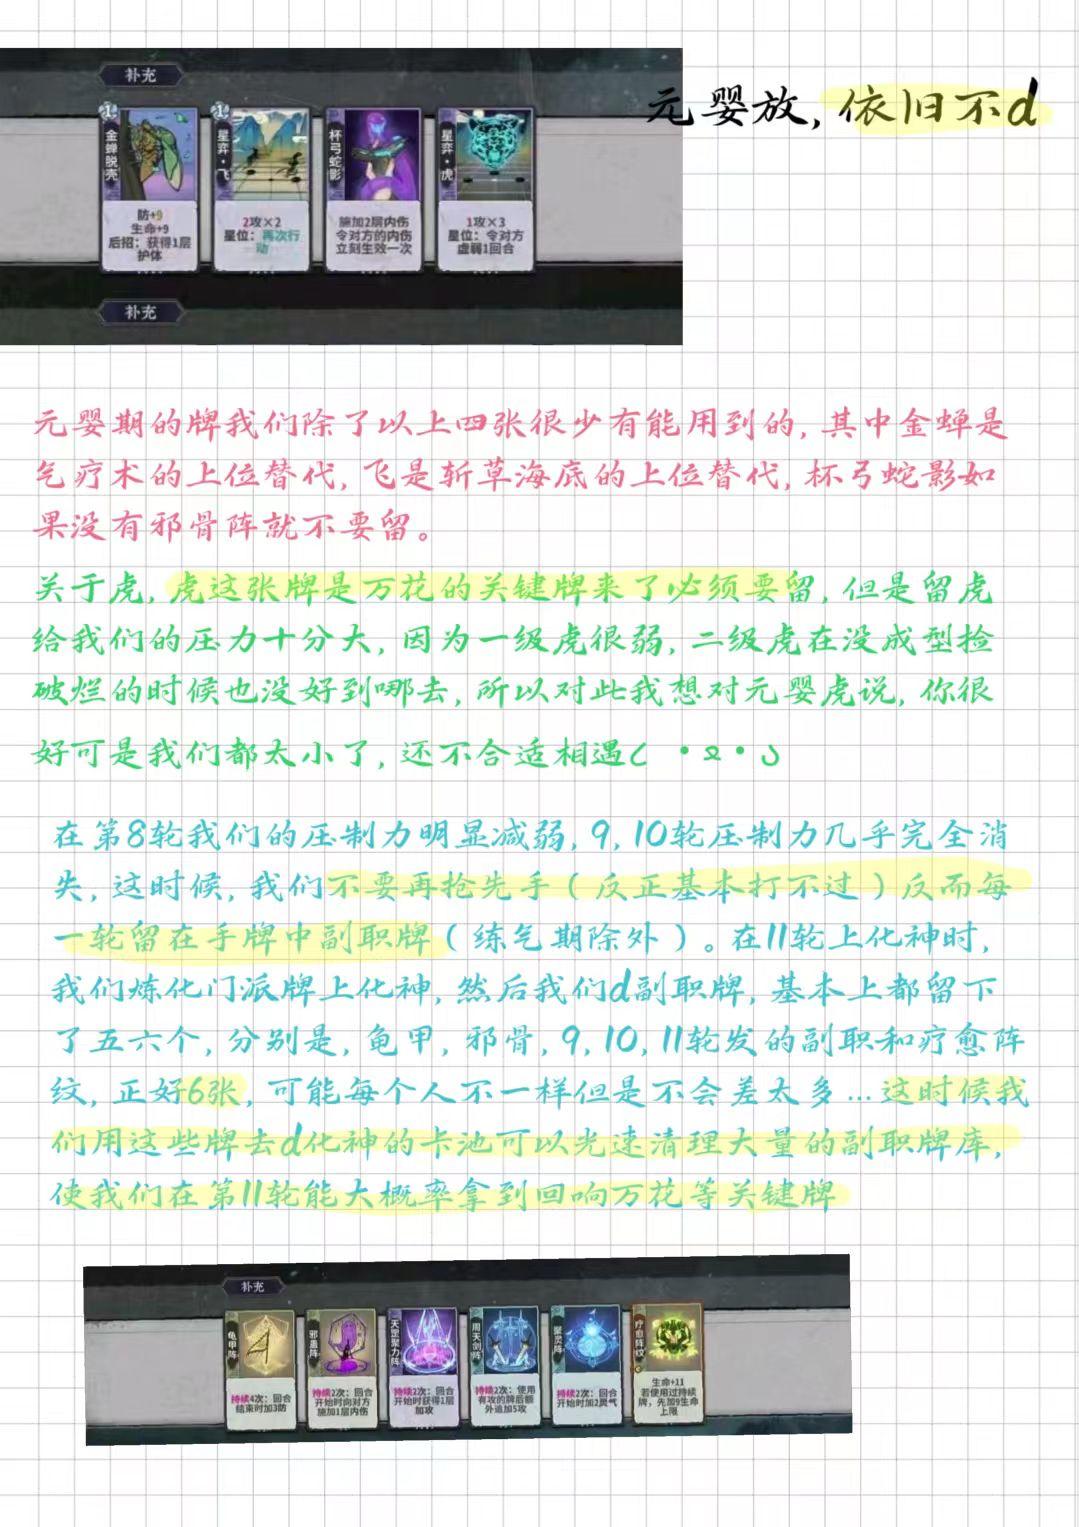 补充
元婴放,依旧不d
金蝉脱壳
防+9
生命+9
后招：获得1层
护体
星弈·飞
2攻×2
星位：再次行
动
杯弓蛇影
施加2层内伤
令对方的内伤
立刻生效一次
星弈·虎
1攻×3
星位：令对方
虚弱1回合
补充
元婴期的牌我们除了以上四张很少有能用到的,其中金蝉是
气疗术的上位替代,飞是斩草海底的上位替代,杯弓蛇影如
果没有邪骨阵就不要留。
关于虎,虎这张牌是万花的关键牌来了必须要留,但是留虎
给我们的压力十分大,因为一级虎很弱,二级虎在没成型捡
破烂的时候也没好到哪去,所以对此我想对元婴虎说,你很
好可是我们都太小了,还不合适相遇
在第8轮我们的压制力明显减弱,9,10轮压制力几乎完全消
失,这时候,我们不要再抢先手（反正基本打不过）反而每
一轮留在手牌中副职牌（练气期除外）。在11轮上化神时,
我们炼化门派牌上化神,然后我们d副职牌,基本上都留下
了五六个,分别是,龟甲,邪骨,9,10,11轮发的副职和疗愈阵
纹,正好6张,可能每个人不一样但是不会差太多…这时候我
们用这些牌去d化神的卡池可以光速清理大量的副职牌库,
使我们在第11轮能大概率拿到回响万花等关键牌
补充
龟甲阵
持续4次：回合
结束时加3防
邪蛊阵
持续2次：回合
开始时向对方
施加1层内伤
天罡聚力阵
持续2次：回合
开始时获得1层
加攻
周天剑阵
持续2次：使用
有攻的牌后额
外追加5攻
聚灵阵
持续2次：回合
开始时加2灵气
疗愈阵纹
生命+11
若使用过持续
牌，先加9生命
上限